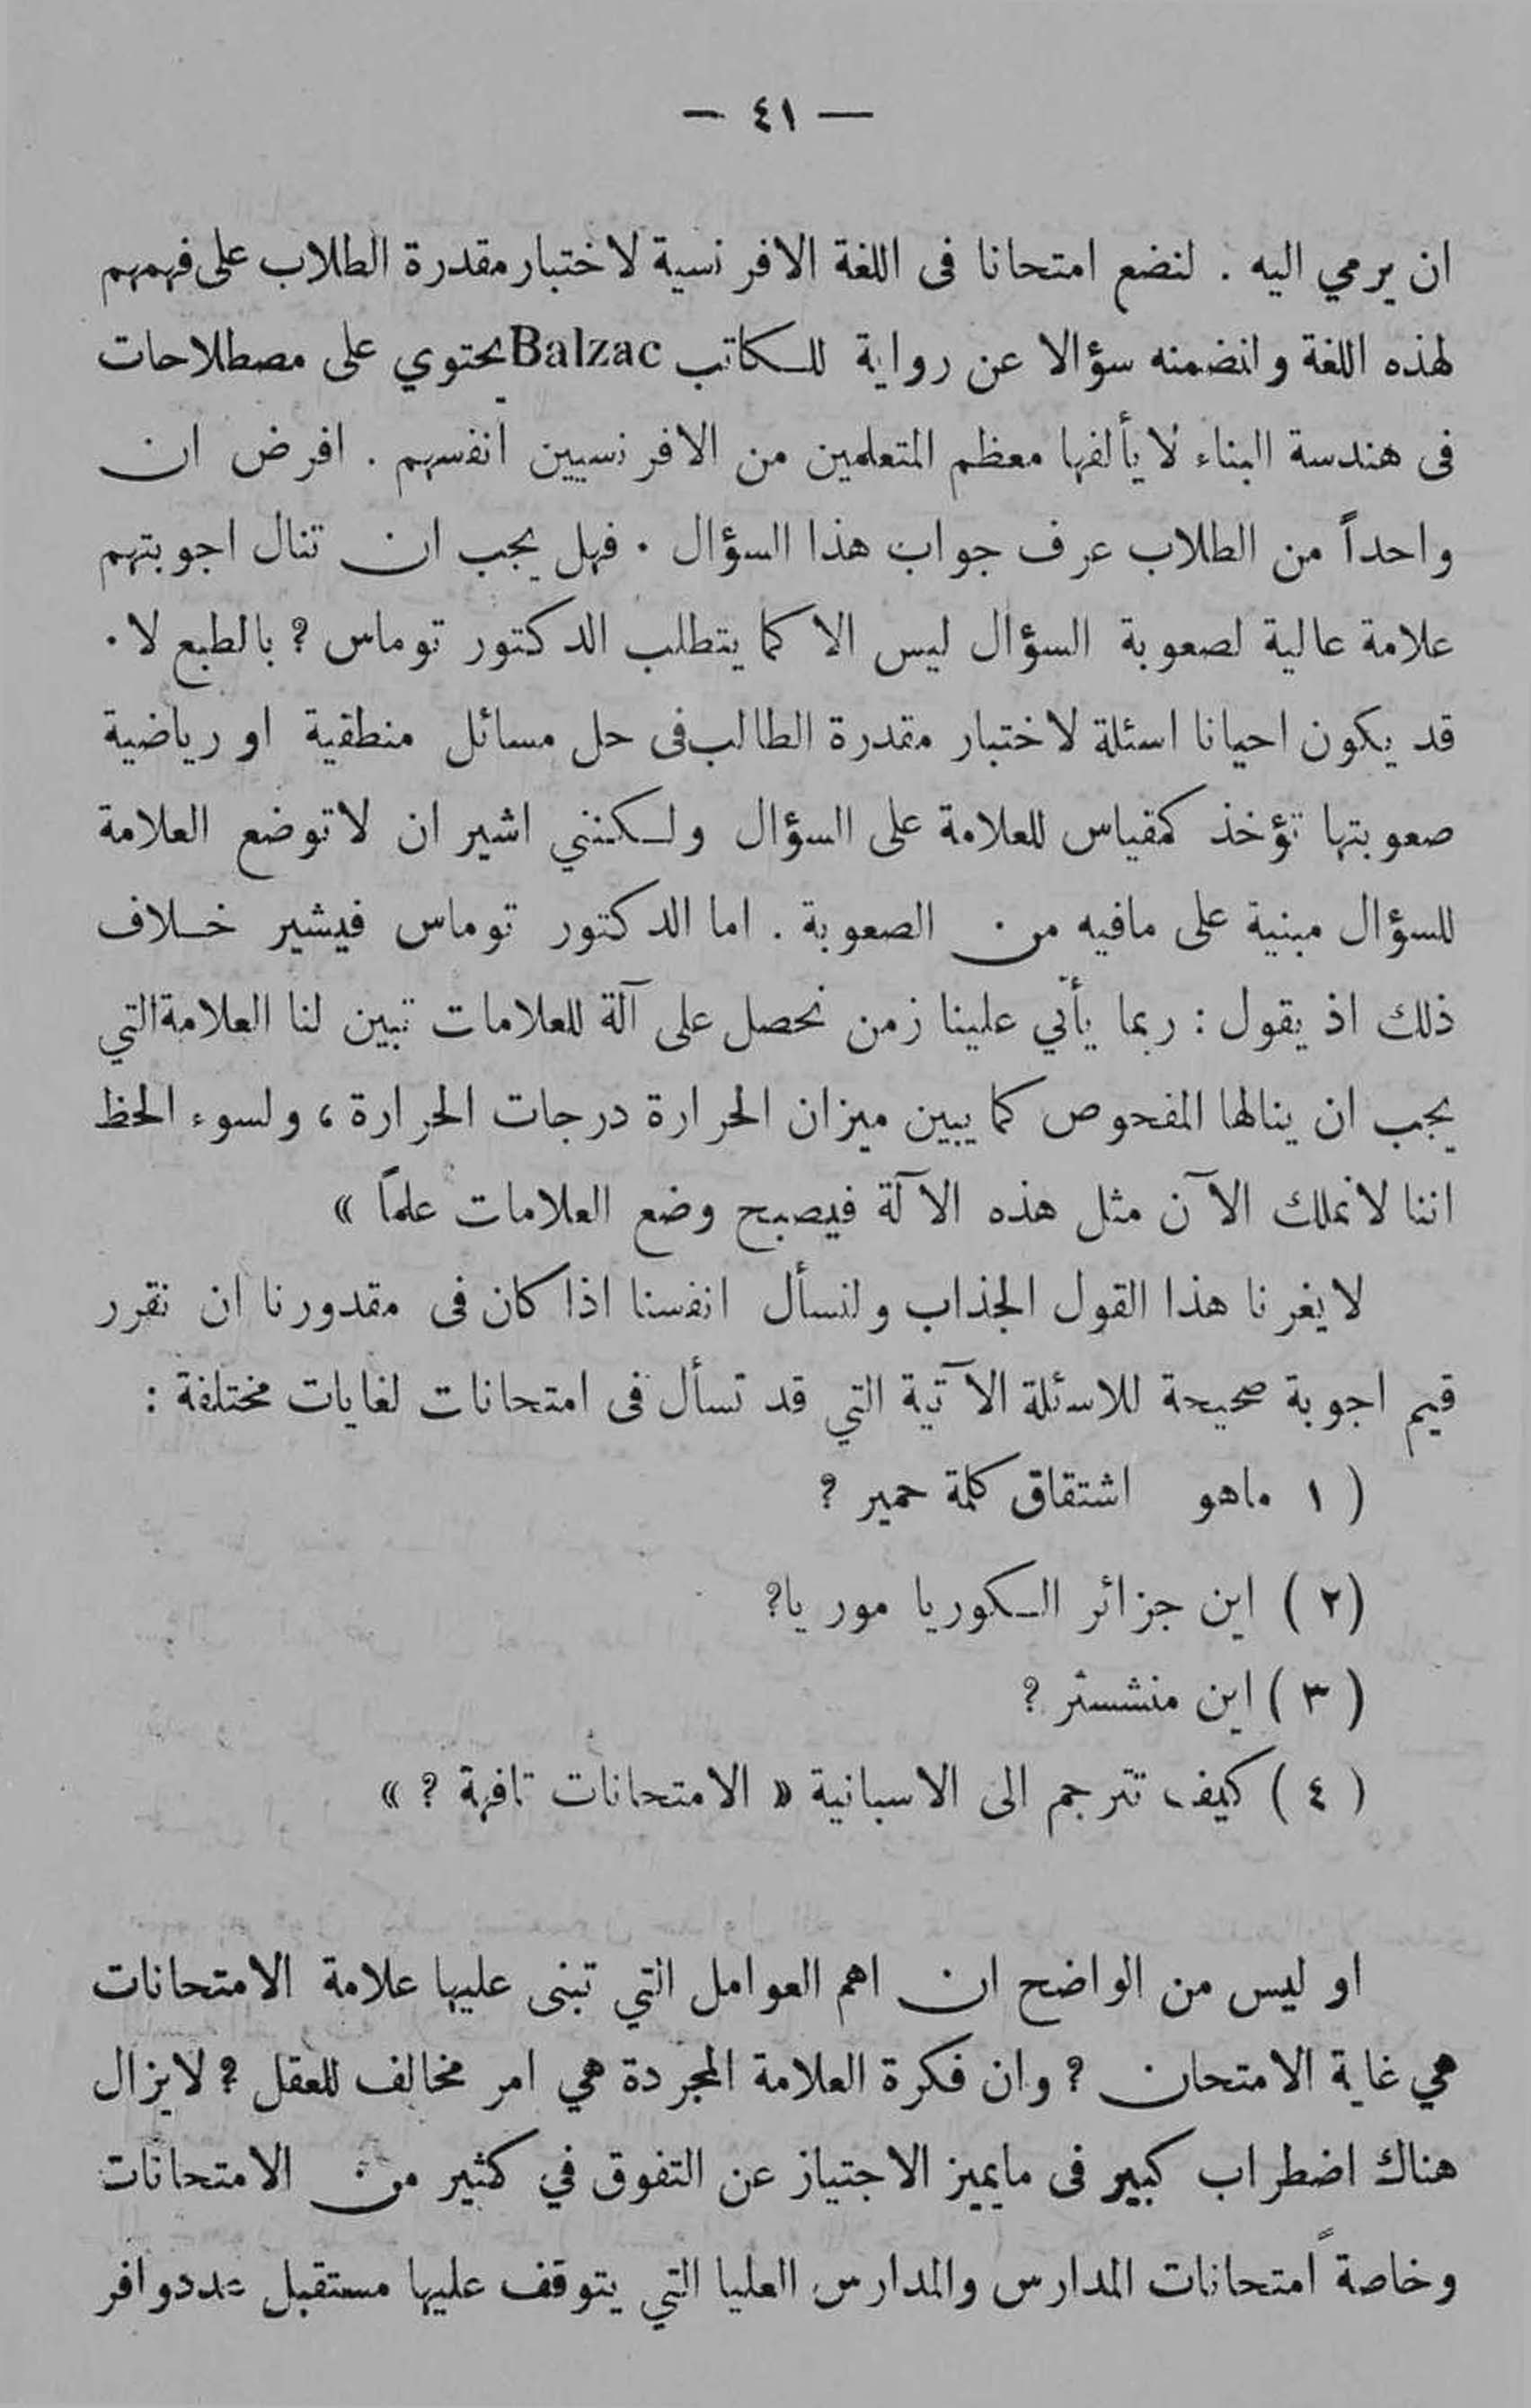 — ٤١ —
ان يرمي اليه . لنضع امتحانا فى اللغة الافرنسية لاختبار مقدرة الطلاب على فهمهم
لهذه اللغة وانضمنه سؤالا عن رواية للكاتب Balzac يحتوي على مصطلاحات
فى هندسة البناء لا يألفها معظم المتعلمين من الافرنسيين انفسهم . افرض ان
واحداً من الطلاب عرف جواب هذا السؤال . فهل يجب ان تنال اجوبتهم
علامة عالية لصعوبة السؤال ليس الا كما يتطلب الدكتور توماس ؟ بالطبع لا .
قد يكون احيانا اسئلة لاختبار مقدرة الطالب فى حل مسائل منطقية او رياضية
صعوبتها تؤخذ كمقياس للعلامة على السؤال ولكنني اشير ان لا توضع العلامة
للسؤال مبنية على مافيه من الصعوبة . اما الدكتور توماس فيشير خلاف
ذلك اذ يقول : ربما يأتي علينا زمن نحصل على آلة للعلامات تبين لنا العلامة التي
يجب ان ينالها المفحوص كما يبين ميزان الحرارة درجات الحرارة ، ولسوء الحظ
اننا لا نملك الآن مثل هذه الآلة فيصبح وضع العلامات علماً »
لا يغرنا هذا القول الجذاب ولنسأل انفسنا اذا كان فى مقدورنا ان نقرر
قيم اجوبة صحيحة للاسئلة الآتية التي قد تسأل فى امتحانات لغايات مختلفة :
( ١ ماهو اشتقاق كلمة حمير ؟
( ٢ ) اين جزائر الكوريا موريا؟
( ٣ ) اين منشستر ؟
( ٤ ) كيف تترجم الى الاسبانية « الامتحانات تافهة ؟ »
او ليس من الواضح ان اهم العوامل التي تبنى عليها علامة الامتحانات
هي غاية الامتحان ؟ وان فكرة العلامة المجردة هي امر مخالف للعقل ؟ لا يزال
هناك اضطراب كبير فى مايميز الاجتياز عن التفوق في كثير من الامتحانات
وخاصةً امتحانات المدارس والمدارس العليا التي يتوقف عليها مستقبل عدد وافر